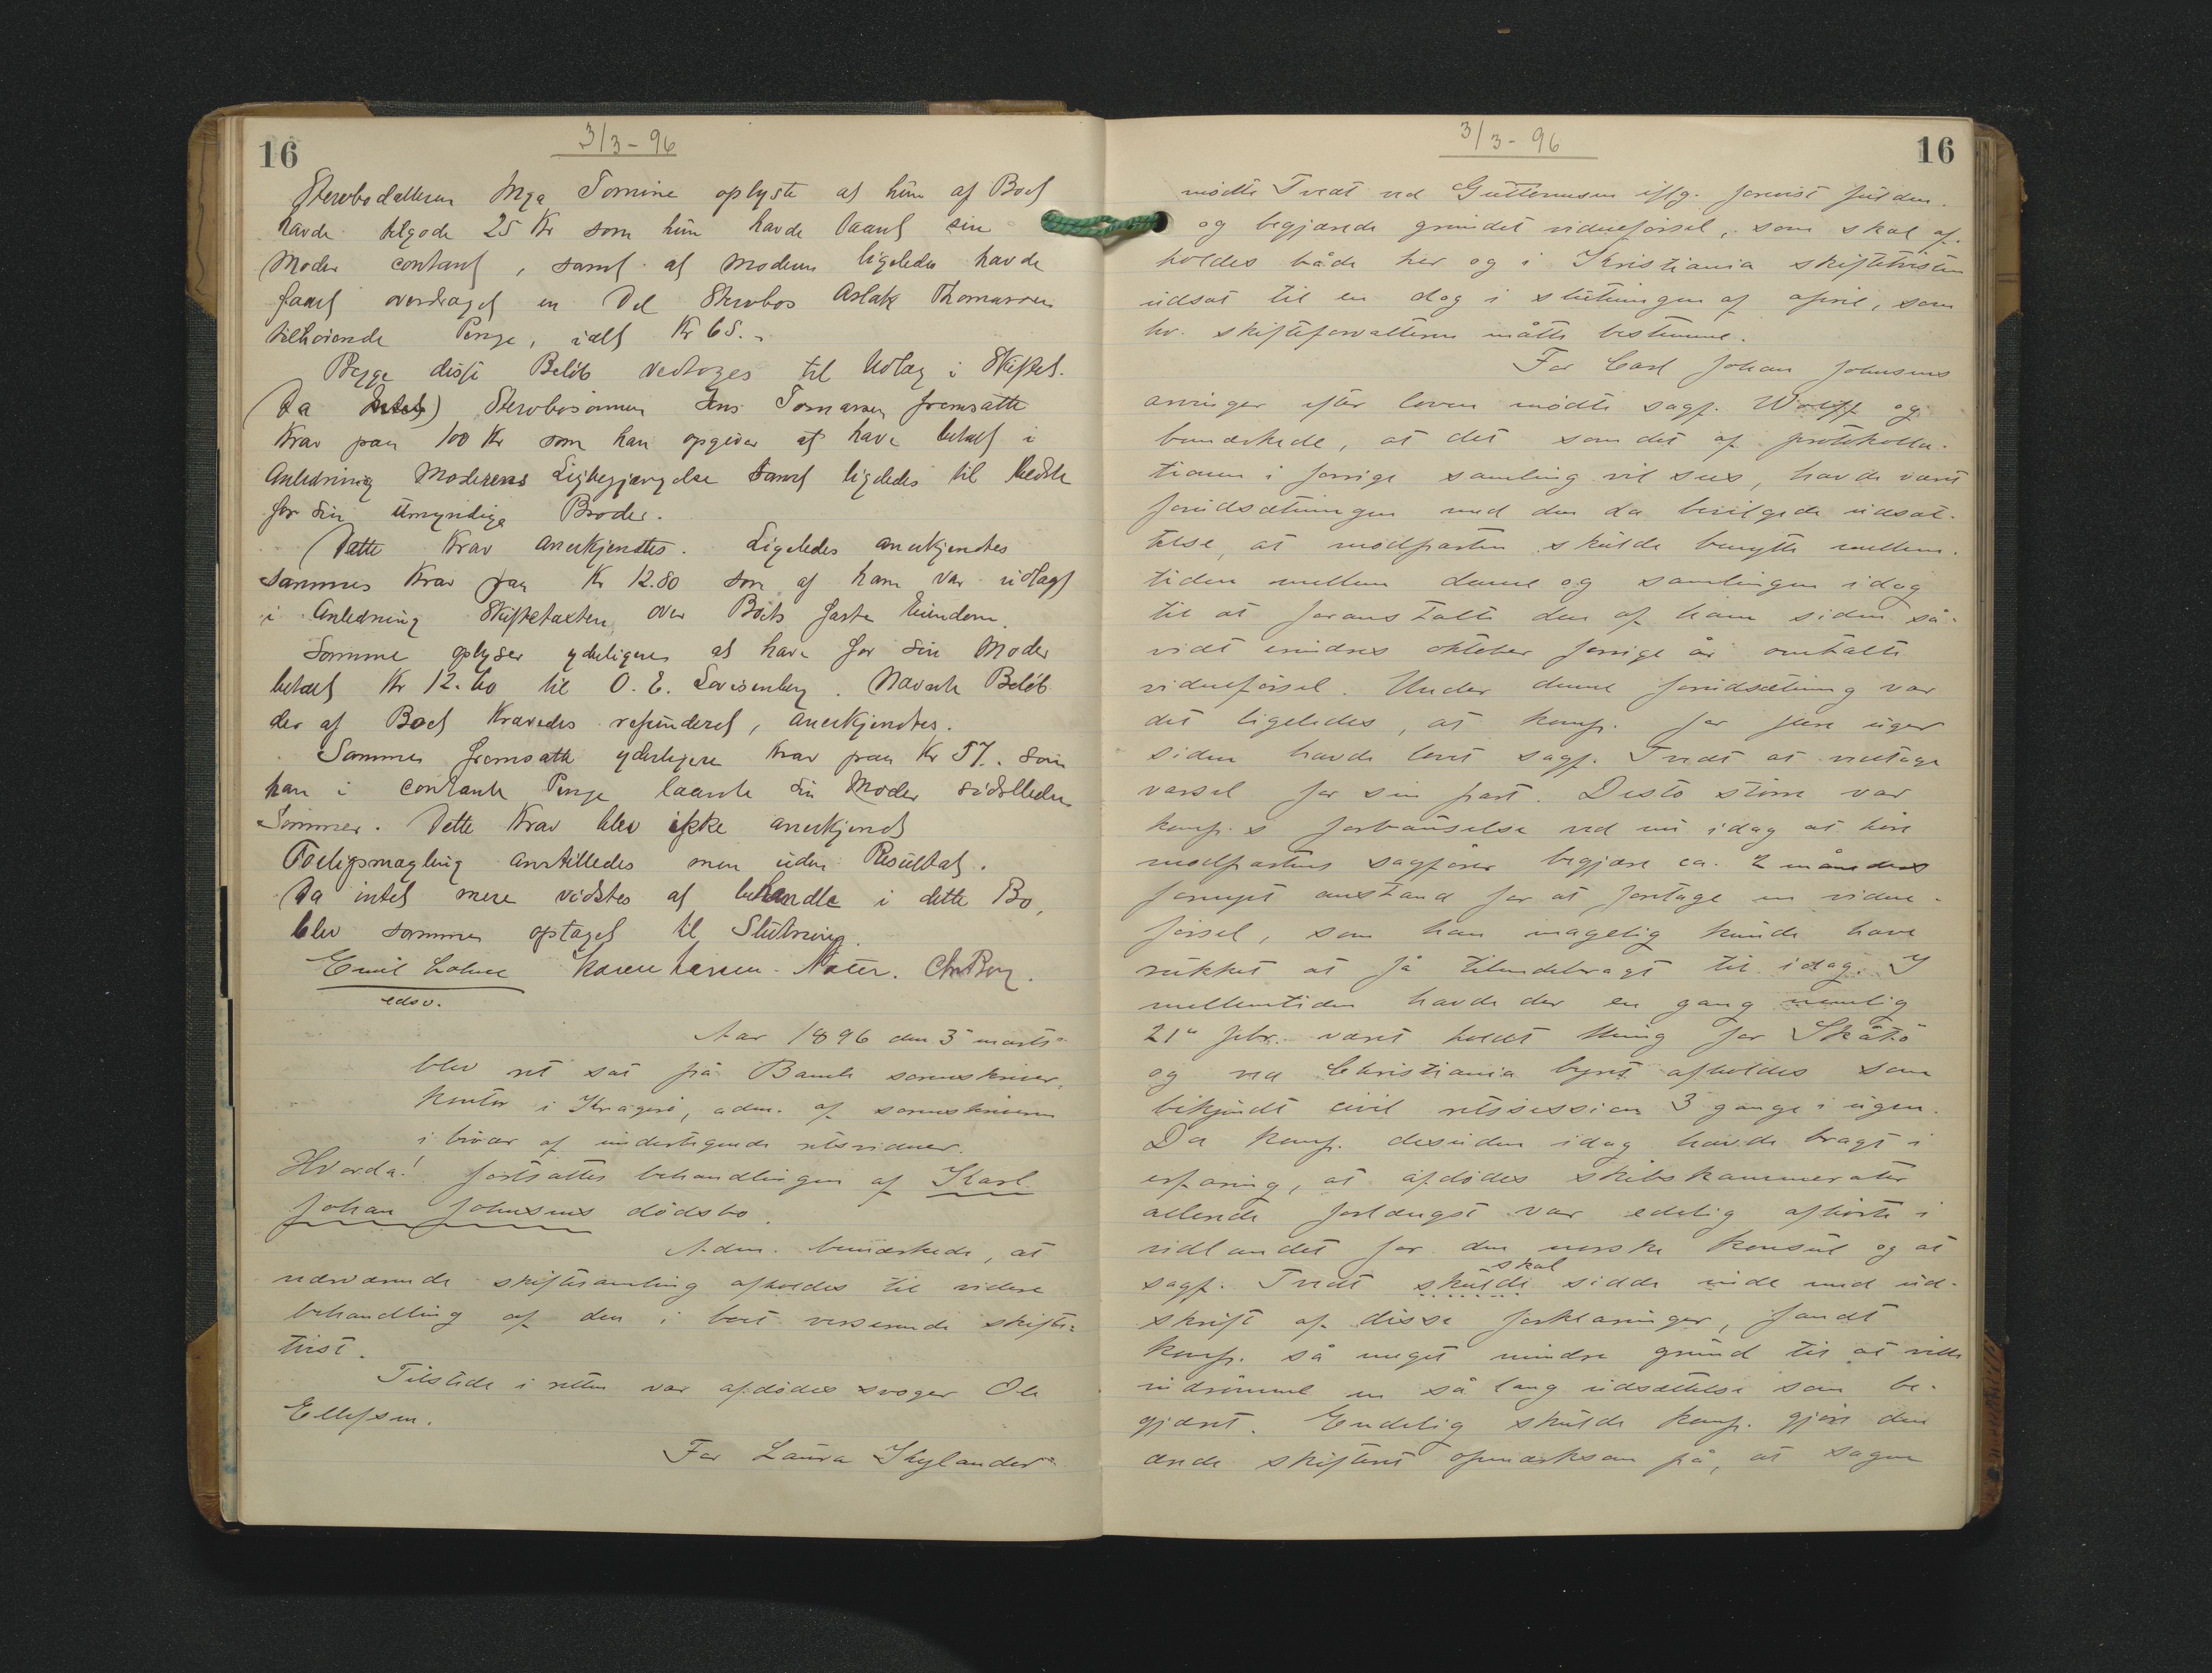 16
3/3-96
Stervbodatteren Inga Tomine oplyste at hun af Boet
havde tilgode 25 Kr som hun havde laant sin
Moder contant, samt at Moderen ligeledes havde
faaet overdraget en Del Stervbos Aslak Thomassen
tilhörende Penge, ialt Kr 65.-
Begge disse Belöb vedtoges til Udlæg i Skiftet.
(Da Intet) Stervbosönnen Jens Tomassen fremsatte
Krav paa 100 Kr som han opgiver at have betalt i
Anledning Moderens Ligbegjængelse samt ligeledes til Bedste
for sin umyndige Broder.
Dette Krav anerkjendtes. Ligeledes anerkjendtes
sammes Krav paa Kr 12.80 som af ham var udlagt
i Anledning Skiftetaxten over Boets faste Eiendom.
Samme oplyser yderligere at have for sin Moder
betalt Kr 12.60 til O. E. Lovisenberg. Nævnte Belöb
der af Boet Kravedes refunderet, anerkjendtes.
Samme fremsatte yderligere Krav paa Kr 57.- som
han i contante Penge laante sin Moder sidstleden
Sommer. Dette Krav blev ikke anerkjendt
Forligsmægling anstilledes men uden Resultat.
Da intet mere vidstes at behandle i dette Bo,
blev samme optaget til Slutning.
Emil Lohne Karen Larsen. Chr Berg.
edsv.
Aar 1896 den 3 marts
blev ret sat på Bamle sorenskriver,
kontor i Kragerø, adm. af sorenskriveren
i bivær af undertegnede retsvidner.
Hvorda! fortsattes behandlingen af Karl
Johan Johnsens dödsbo.
Adm. bemærkede, at
nærværende skiftesamling afholdes til videre
behandling af den i boet verserende skifte-
tvist.
Tilstede i retten var afdödes svoger Ole
Ellefsen.
For Laura Thylander
3/3-96
16
mödte Tvedt ved Guttormsen iflg. forevist fuldm.
og begjærede grundet vidneförsel, som skal af-
holdes både her og i Kristiania skiftetvisten
udsat til en dag i slutningen af april, som
hr. skifteforvalteren måtte bestemme.
For Carl Johan Johnsens
arvinger efter loven mödte sagf. Wolff og
bemærkede, at det som det af protokolla-
tionen i forrige samling vil sees, havde været
forudsætningen med den da bevilgede udsæt-
telse, at modparten skulde benytte mellem-
tiden mellem denne og samlingen idag
til at foranstalte den af ham siden så-
vidt erindres oktober forrige år omtalte
vidneförsel. Under denne forudsætning var
det ligeledes, at komp. for flere uger
siden havde lovet sagf. Tvedt at vedtage
varsel for sin part. Desto större var
komp.s forbauselse ved nu idag at höre
modpartens sagförer begjære ca. 2 måneders
fornyet anstand for at foretage en vidne-
försel, som han magelig kunde have
rukket at få tilendebragt til idag. I
mellemtiden havde der en gang nemlig
21de febr. været holdt thing for Skåtö
og ved Christiania byret afholdes som
bekjendt civil retssession 3 gange i ugen.
Da komp. desuden idag havde bragt i
erfaring, at afdödes skibskammerater
allerede forlængst var edelig afhörte i
udlandet for den norske konsul og at
skal
sagf. Tvedt skulde sidde inde med ud-
skrift af disse forklaringer, fandt
komp. så meget mindre grund til at ville
indrömme en så lang udsættelse som be-
gjæret. Endelig skulde komp. gjöre den
ærede skifteret opmærksom på, at sagen